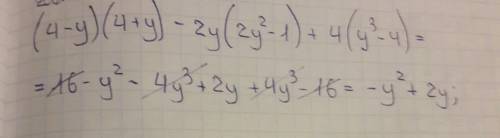 (4-y)(4+y) - 2y(2y²-1) + 4(y³-4) =
= 16 - y² - 4y³ + 2y + 4y³ - 16 = -y² + 2y;